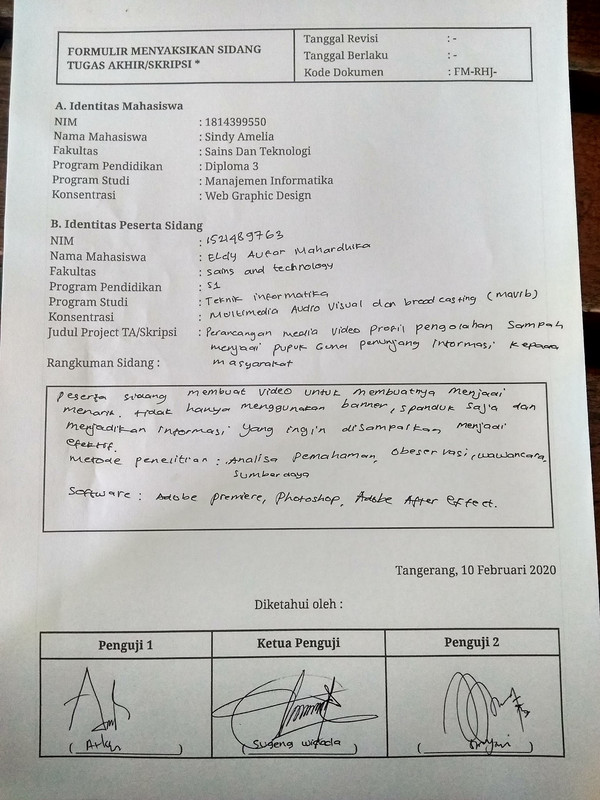 FORMULIR MENYAKSIKAN SIDANG
TUGAS AKHIR/SKRIPSI *
Tanggal Revisi : -
Tanggal Berlaku : -
Kode Dokumen : FM-RHJ-
A. Identitas Mahasiswa
NIM : 1814399550
Nama Mahasiswa : Sindy Amelia
Fakultas : Sains Dan Teknologi
Program Pendidikan : Diploma 3
Program Studi : Manajemen Informatika
Konsentrasi : Web Graphic Design
B. Identitas Peserta Sidang
NIM : 1521489763
Nama Mahasiswa : Eldy Mahardhika
Fakultas : sains and technology
Program Pendidikan : S1
Program Studi : Teknik informatika
Konsentrasi : Multimedia Audio Visual dan broad casting (mavib)
Judul Project TA/Skripsi : Perancangan media video profil pengolahan sampah
menjadi pupuk Guna penunjang informasi kepada
Rangkuman Sidang : masyarakat
peserta sidang membuat video untuk membuatnya menjadi
menarik. tidak hanya menggunakan banner, spanduk saja dan
menjadikan informasi yang ingin disampaikan menjadi
efektif.
metode penelitian : Analisa Pemahaman, obeservasi, wawancara,
sumberdaya
Software : Adobe premiere, Photoshop, Adobe After effect.
Tangerang, 10 Februari 2020
Diketahui oleh :
Penguji 1
Ketua Penguji
Penguji 2
(Sugeng widada)